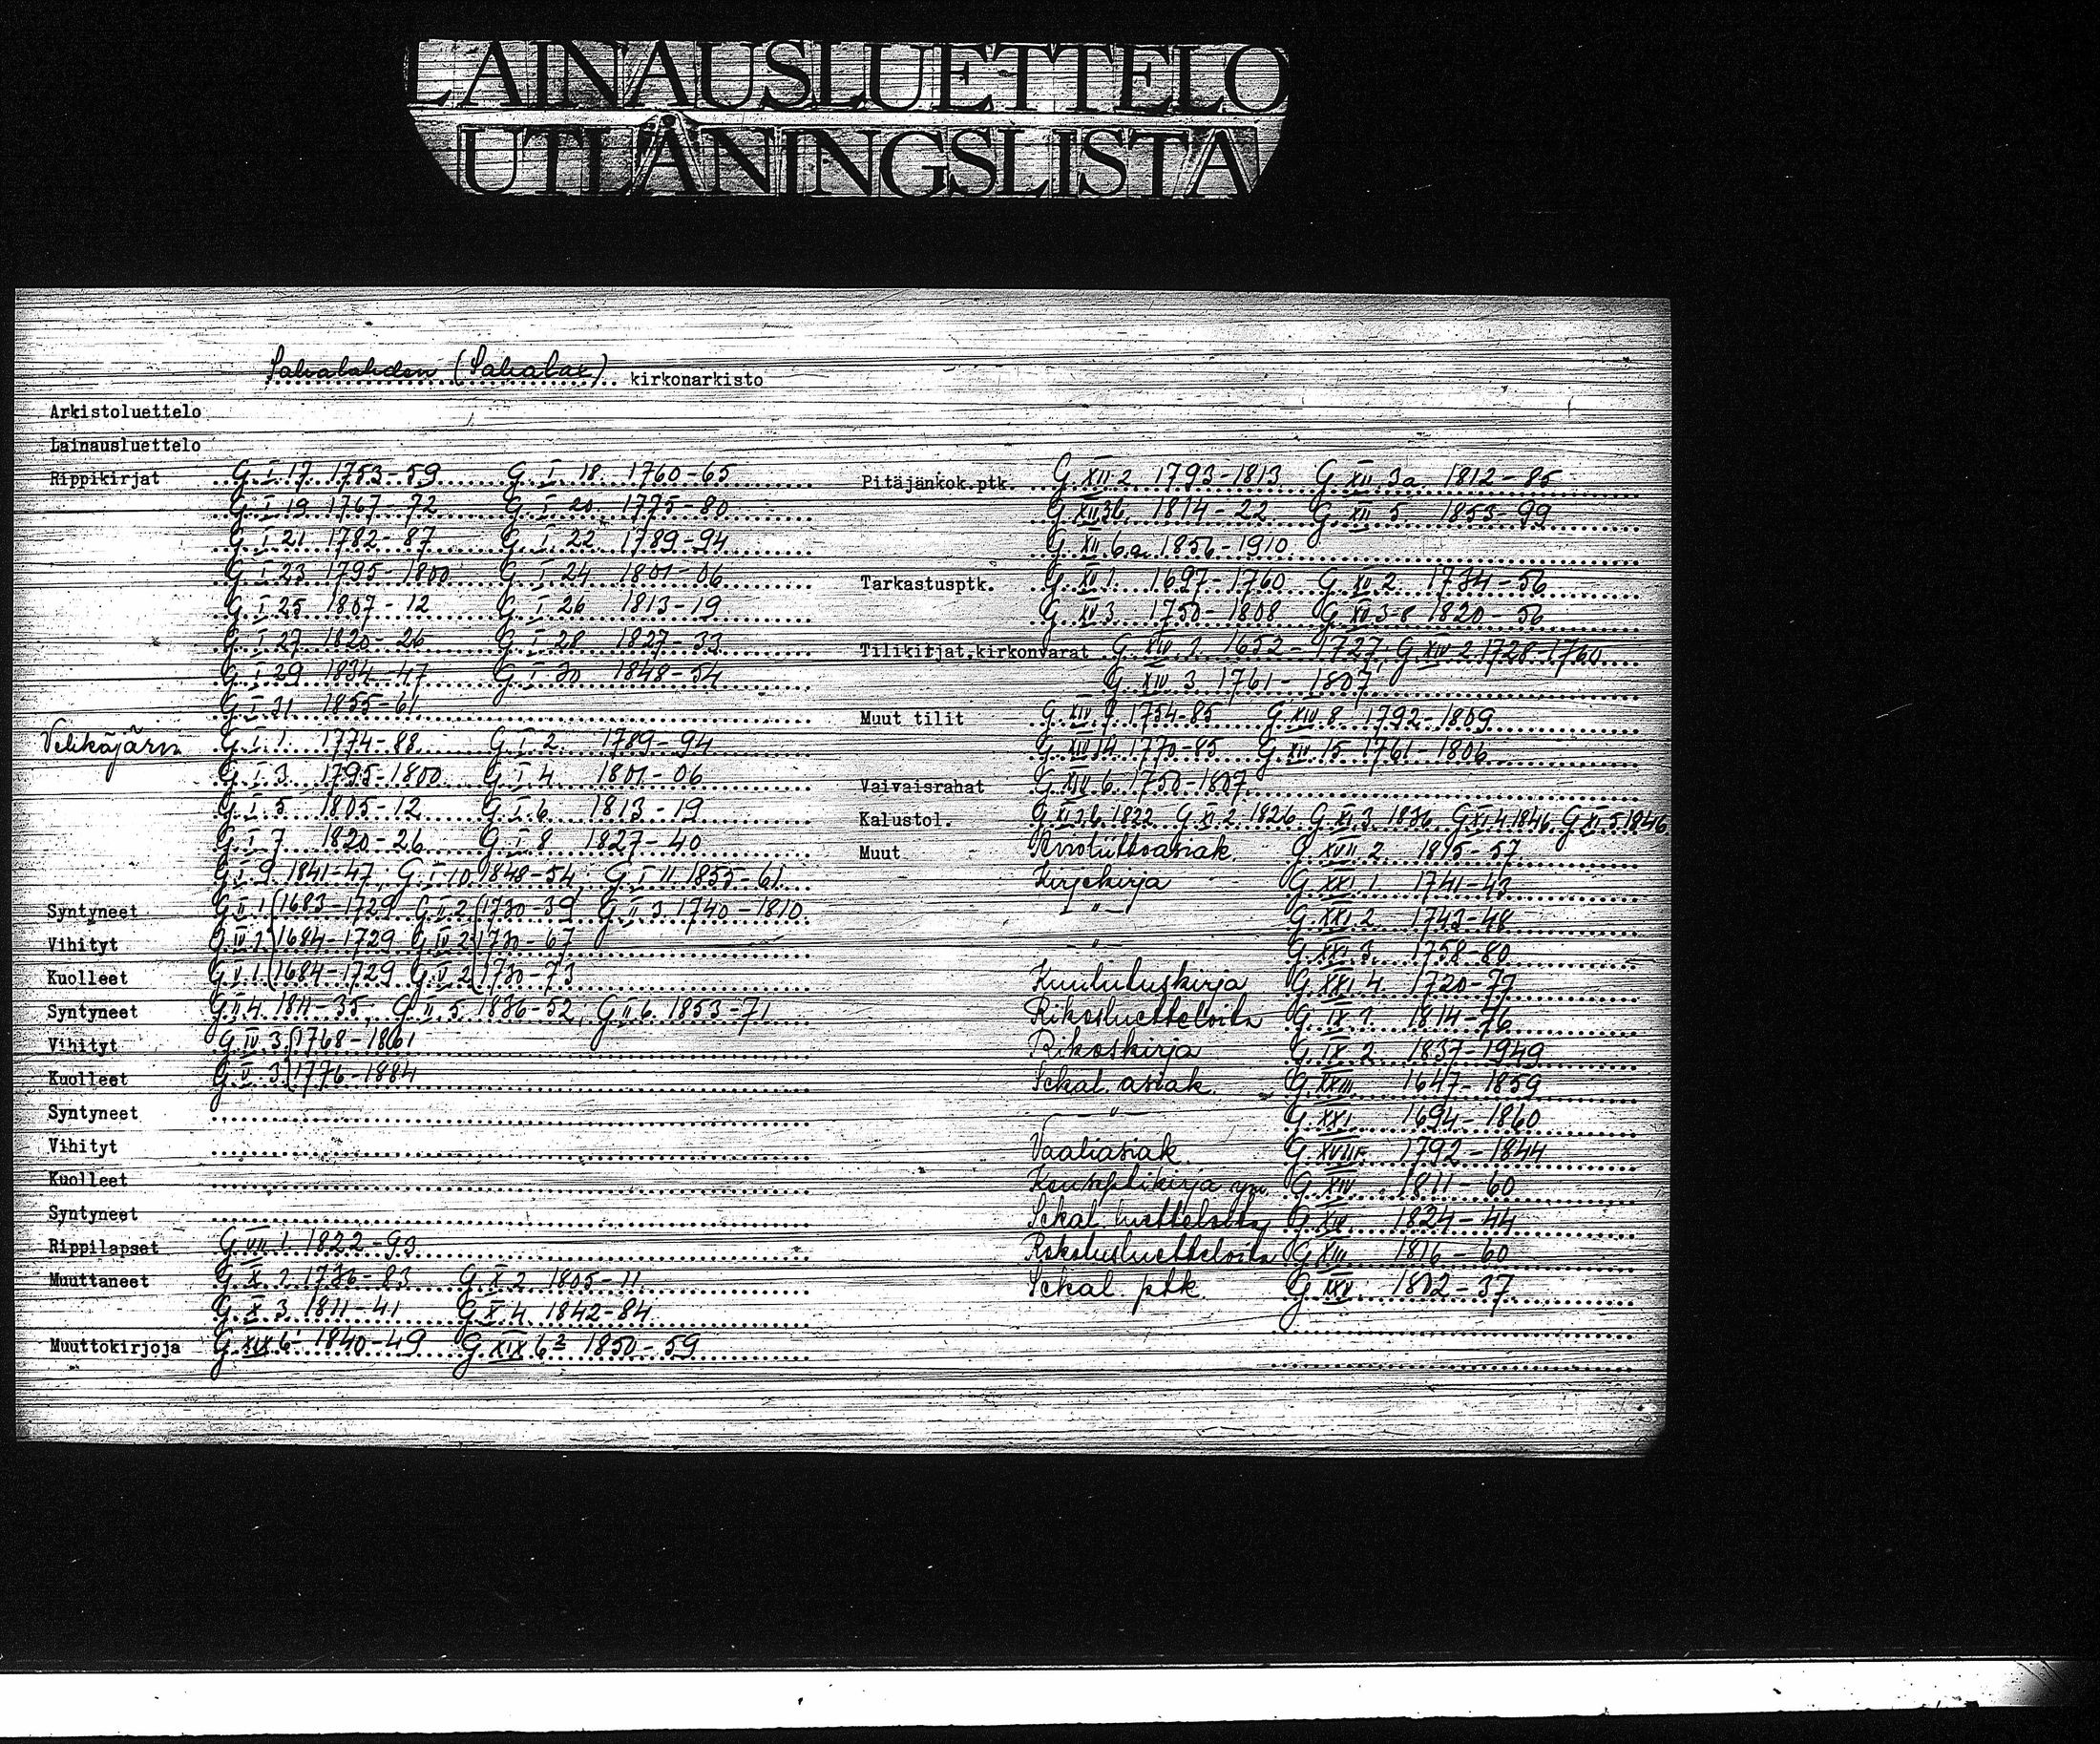 LAINAUSLUETTELO
UTLÅNINGSLISTA
Sahalahden (Sahalax) kirkonarkisto
Arkistoluettelo
Lainausluettelo
Rippikirjat G I 17 1753-59 G I 18 1760-65
G I 19 1767-72 G I 20 1775-80
G I 21 1782-87 G I 22 1789-94
G I 23 1795-1800 G I 24 1801-06
G I 25 1807-12 G I 26 1813-19
G I 27 1820-26 G I 28 1827-33
G I 29 1834-47 G I 30 1848-54
G I 31 1855-61
G I 1 1774-88 G I 2 1789-94
G I 3 1795-1800 G I 4 1801-06
G I 5 1805-12 G I 6 1813-19
G I 7 1820-26 G I 8 1827-40
G I 9 1841-47, G I 10 1848-54, G I 11 1855-61
Syntyneet G II 1 (1683-1729 G II 2 (1730-39 G II 3 1740-1810
Vihityt G IV 1 (1684-1729 G IV 2 (1730-67
Kuolleet G V 1 (1684-1729 G V 2 (1730-73
Syntyneet G II 4 1811-35, G II 5 1836-52, G II 6 1853-71
Vihityt G IV 3 (1768-1861
Kuolleet G V 3 (1776-1884
Syntyneet
Vihityt
Kuolleet
Syntyneet
Rippilapset G VII 1 1822-93
Muuttaneet G X 1 1736-83 G X 2 1805-11
G X 3 1811-41 G X 4 1842-84
Muuttokirjoja G XIX 6¹ 1840-49 G XIX 6² 1850-59
Pitäjänkok.ptk. G XII 2 1793-1813 G XII 3a 1812-85
G XII 3b 1814-22 G XII 5 1853-99
G XII 6a 1856-1910
Tarkastusptk. G XV 1 1697-1760 G XV 2 1734-56
G XV 3 1750-1808 G XV 3-8 1820-56
Tilikirjat, kirkonvarat G XIV 1 1652-1727, G XIV 2 1728-1760
G XIV 3 1761-1807
Muut tilit G XIV 7 1754-85 G XIV 8 1792-1809
G XIV 14 1770-85 G XIV 15 1761-1806
Vaivaisrahat G XIV 6 1750-1807
Kalustol. G XI 3b 1822 G XI 2 1826 G XI 3 1836 G XI 4 1846 G XI 5 1846
Muut G XVII 2 1815-57
Kirjekirja G XXI 1 1741-43
-"- G XXI 2 1743-48
-"- G XXI 3 1758-80
Kuulutuskirja G XXI 4 1720-77
Rikosluetteloita G IX 1 1814-76
Rikoskirja G IX 2 1837-1949
Sekal. asiak. G XXIII 1647-1859
-"- G XXI 1694-1860
Vaaliasiak. G XVIII 1792-1844
Konseptikirja ym. G XIV 1811-60
Sekal. luetteloita G XIV 1824-44
Rokotusluetteloita G XIII 1816-60
Sekal. ptk. G XXV 1802-37